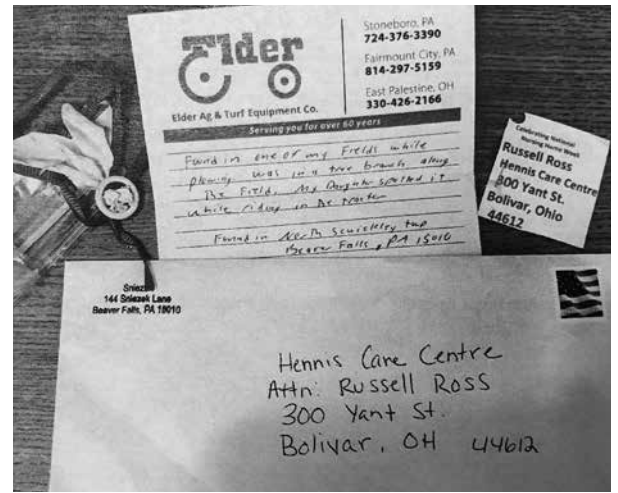 Elder
Elder Ag & Turf Equipment Co.
Stoneboro, PA
724-376-3390
Fairmount City, PA
814-297-5159
East Palestine, OH
330-426-2166
Serving you for over 60 years
Found in one of my Fields while
plowing was in a tree branch along
The Field. My Daughter spotted it
while riding in the tractor
Found in North Sewickley twp
Beaver Falls, PA 15010
Celebrating National
Nursing Home Week
Russell Ross
Hennis Care Centre
300 Yant St.
Bolivar, Ohio
44612
144 Sniezek Lane
Beaver Falls, PA 15010
Hennis Care Centre
Attn: Russell Ross
300 Yant St.
Bolivar, OH 44612